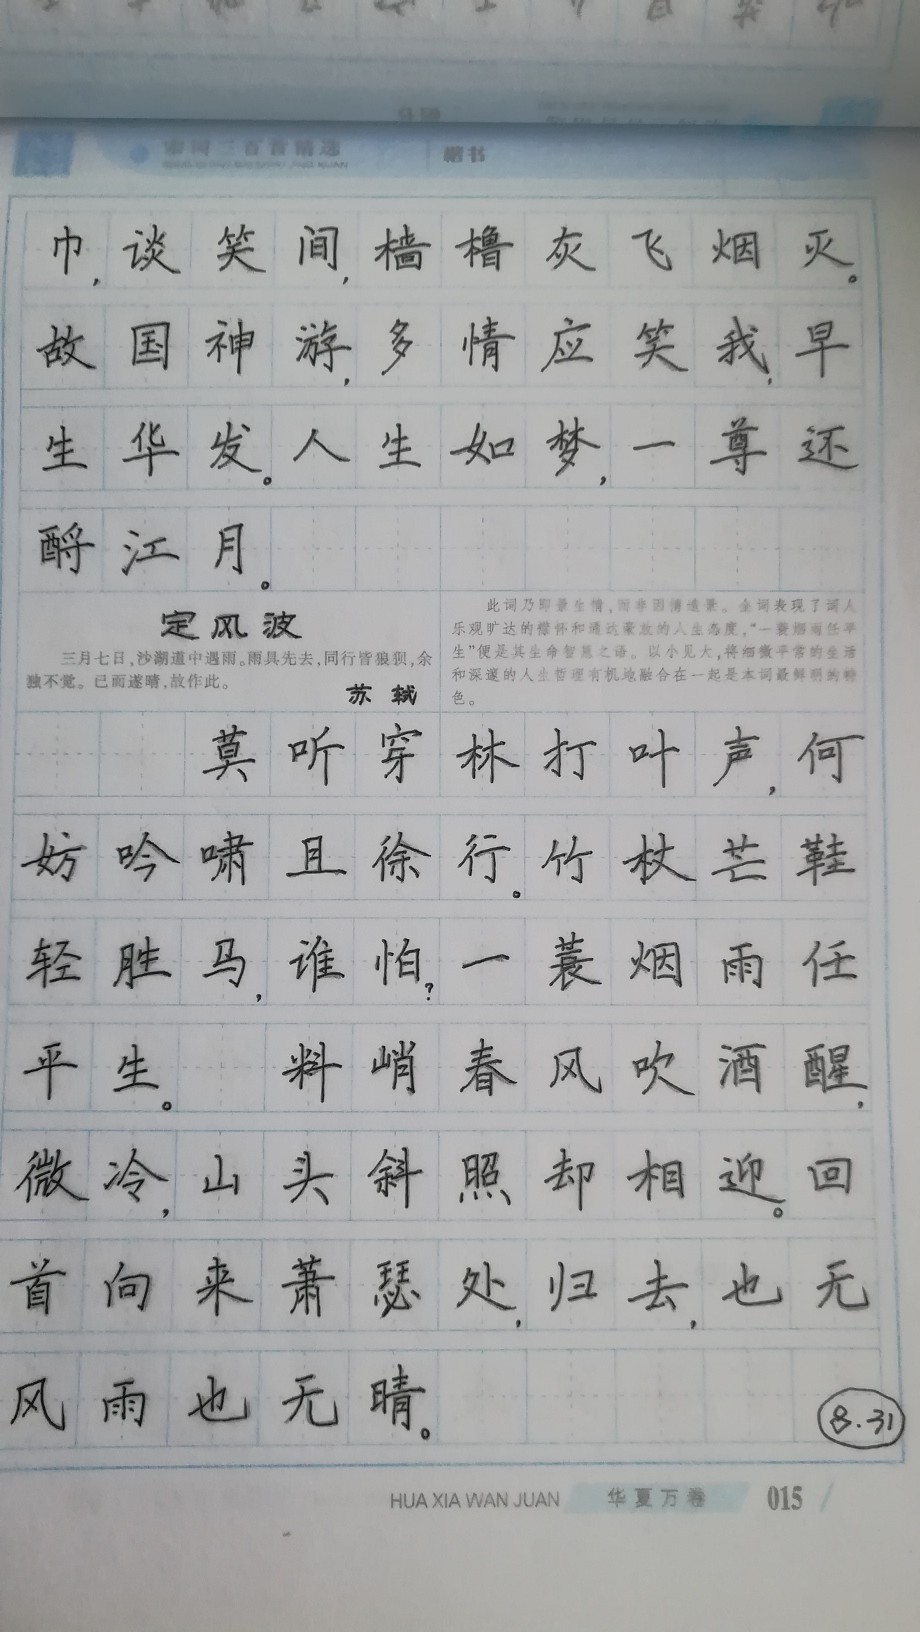 宋词三百首精选 楷书
巾，谈笑间，樯橹灰飞烟灭。
故国神游，多情应笑我，早
生华发。人生如梦，一尊还
酹江月。
定风波
三月七日，沙湖道中遇雨。雨具先去，同行皆狼狈，余
独不觉。已而遂晴，故作此。
苏轼
此词乃即景生情，而非因情造景。全词表现了词人
乐观旷达的襟怀和通达豪放的人生态度，“一蓑烟雨任平
生”便是其生命智慧之语。以小见大，将细微平常的生活
和深邃的人生哲理有机地融合在一起是本词最鲜明的特
色。
莫听穿林打叶声，何
妨吟啸且徐行。竹杖芒鞋
轻胜马，谁怕？一蓑烟雨任
平生。 料峭春风吹酒醒，
微冷，山头斜照却相迎。回
首向来萧瑟处，归去，也无
风雨也无晴。
8.31
HUA XIA WAN JUAN 华夏万卷 015